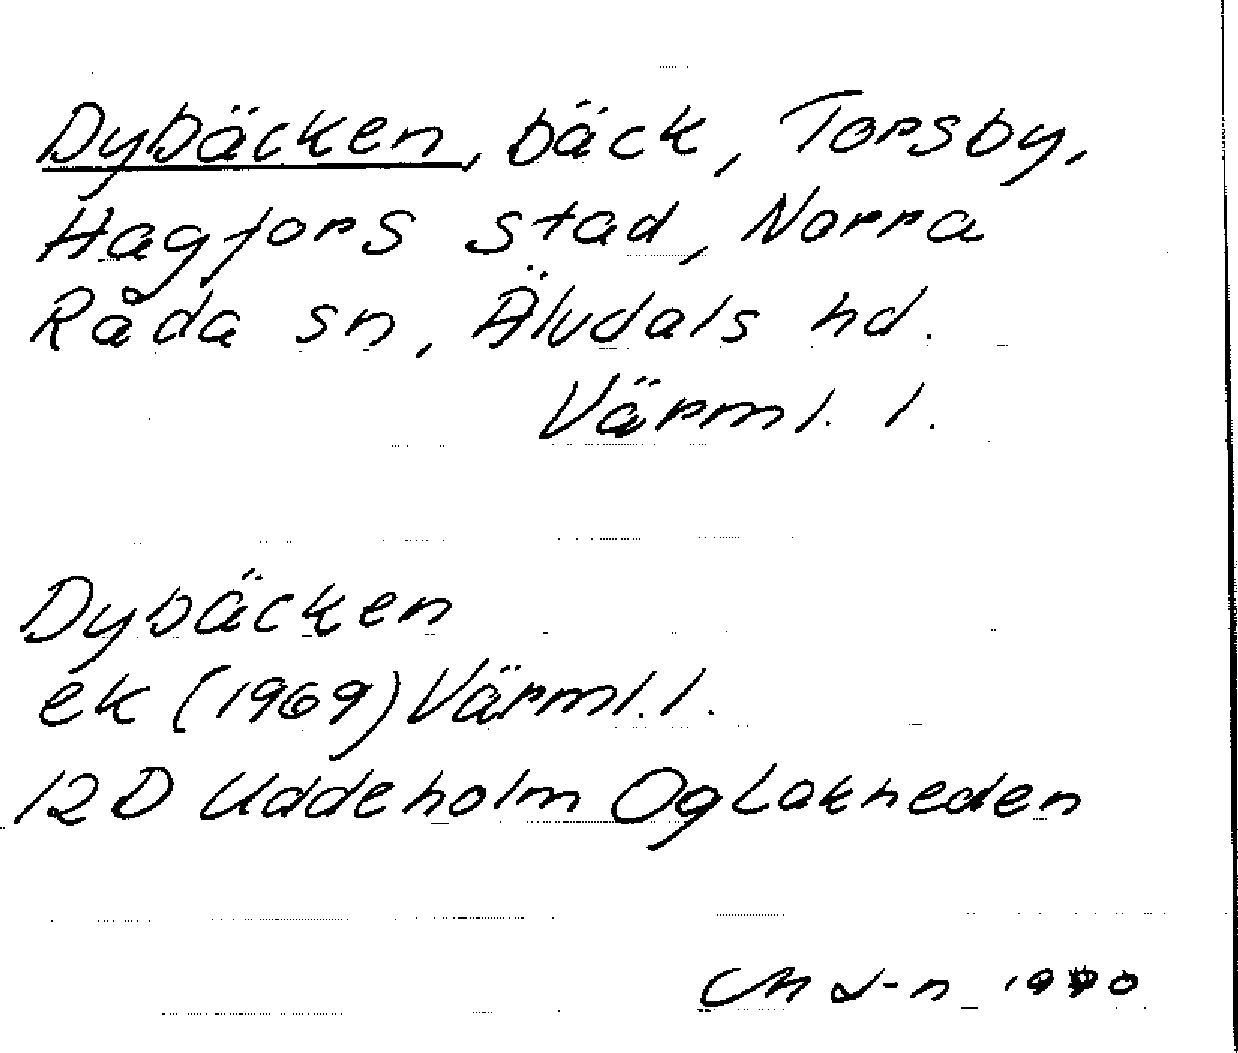 Dybäcken, bäck, Torsby,
Hagfors stad, Norra
Råda sn, Älvdals hd.
Värml. l.
Dybäcken
ek (1969) Värml. l.
12D Uddeholm Og Lakheden